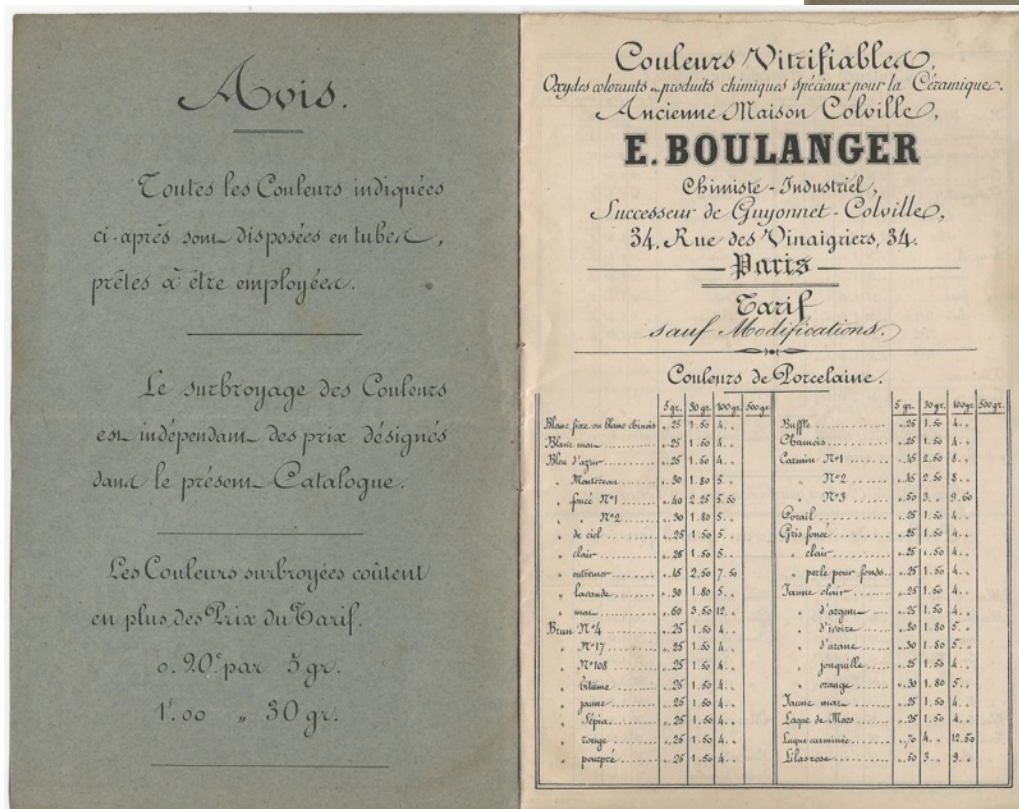 Avis.
Toutes les Couleurs indiquées
ci-après sont disposées en tubes,
prêtes à être employées.
Le surbroyage des Couleurs
est indépendant des prix désignés
dans le présent Catalogue.
Les Couleurs surbroyées coûtent
en plus des Prix du Tarif.
0.20c par 5 gr.
1f.00 " 30 gr.
Couleurs Vitrifiables,
Oxydes colorants & produits chimiques spéciaux pour la Céramique.
Ancienne Maison Colville,
E. BOULANGER
Chimiste-Industriel,
Successeur de Guyonnet-Colville,
34, Rue des Vinaigriers, 34.
Paris
Tarif
sauf Modifications.
Couleurs de Porcelaine.
5 gr. 30 gr. 100 gr. 500 gr.
Blanc fixe ou blanc chinois ".25 1.50 4."
Blanc mat ".25 1.50 4."
Bleu d'azur ".25 1.50 4."
" Montereau ".30 1.80 5."
" foncé N°1 ".40 2.25 5.50
" " N°2 ".30 1.80 5."
" de ciel ".25 1.50 5."
" clair ".25 1.50 5."
" outremer ".45 2.50 7.50
" lavande ".30 1.80 5."
" mat ".60 3.50 12."
Brun N°4 ".25 1.50 4."
" N°17 ".25 1.50 4."
" N°108 ".25 1.50 4."
" bitume ".25 1.50 4."
" jaune ".25 1.50 4."
" Sépia ".25 1.50 4."
" rouge ".25 1.50 4."
" pourpré ".25 1.50 4."
5 gr. 30 gr. 100 gr. 500 gr.
Buffle ".25 1.50 4."
Chamois ".25 1.50 4."
Carmin N°1 ".45 2.50 8."
" N°2 ".45 2.50 8."
" N°3 ".50 3." 9.60
Corail ".25 1.50 4."
Gris foncé ".25 1.50 4."
" clair ".25 1.50 4."
" perle pour fonds ".25 1.50 4."
Jaune clair ".25 1.50 4."
" d'argent ".25 1.50 4."
" d'ivoire ".30 1.80 5."
" d'urane ".30 1.80 5."
" jonquille ".25 1.50 4."
" orange ".30 1.80 5."
Jaune mat ".25 1.50 4."
Laque de Mars ".25 1.50 4."
Laque carminée ".70 4." 12.50
Lilas rose ".50 3." 9."